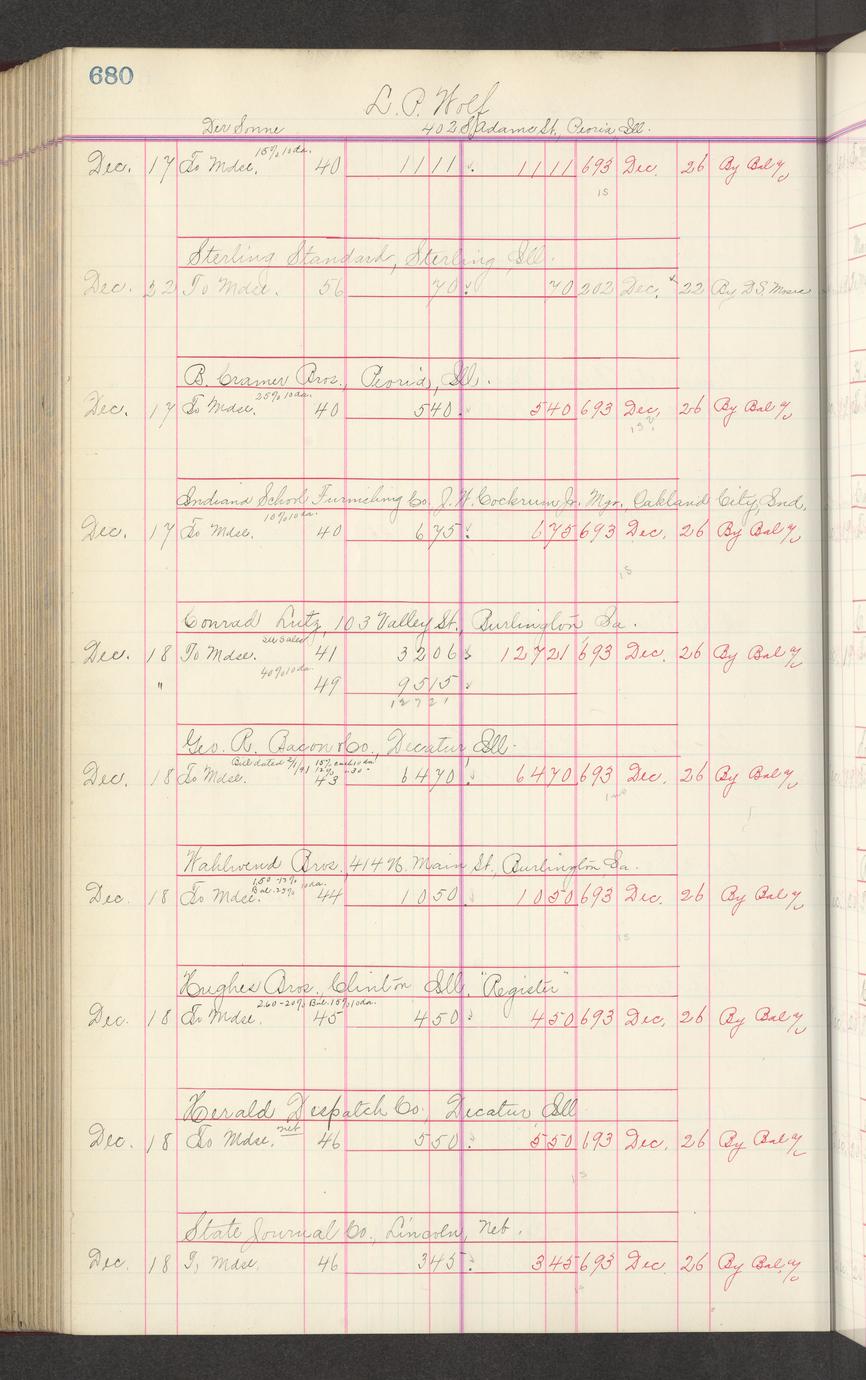 680
L. P. Wolf
Der Sonne 402 S Adams St., Peoria Ill.
15% 10 da.
Dec. 17 To Mdse. 40 1111 1111 693 Dec. 26 By Bal
15
Sterling Standard, Sterling Ill.
Dec. 22 To Mdse. 56 70 70 202 Dec. 22 By D.S.
B. Cramer Bros., Peoria, Ill.
25% 10 da.
Dec. 17 To Mdse. 40 540 540 693 Dec. 26 By Bal
Indiana School Furnishing Co. J. W. Cockrum Jr. Mgr. Oakland City, Ind.
10% 10 da.
Dec. 17 To Mdse. 40 675 675 693 Dec. 26 By Bal
15
Conrad Lutz, 103 Valley St., Burlington Ia.
see sales
Dec. 18 To Mdse. 41 3206 12721 693 Dec. 26 By Bal
40% 10 da.
" 49 9515
12721
Geo. R. Bacon & Co., Decatur Ill.
Bill dated 2/1/91 15% cash 10 da
12% " 30 "
Dec. 18 To Mdse. 43 6470 6470 693 Dec. 26 By Bal
Wahlwend Bros., 414 N. Main St., Burlington Ia.
1.50 -12%
Bal. 25% 10 da.
Dec. 18 To Mdse. 44 1050 1050 693 Dec. 26 By Bal
15
Hughes Bros., Clinton Ill. "Register"
2.60-20% Bal. 15% 10 da.
Dec. 18 To Mdse. 45 450 450 693 Dec. 26 By Bal
Herald Despatch Co., Decatur Ill
net
Dec. 18 To Mdse. 46 550 550 693 Dec. 26 By Bal
15
State Journal Co., Lincoln, Neb.
Dec. 18 To Mdse. 46 345 345 693 Dec. 26 By Bal